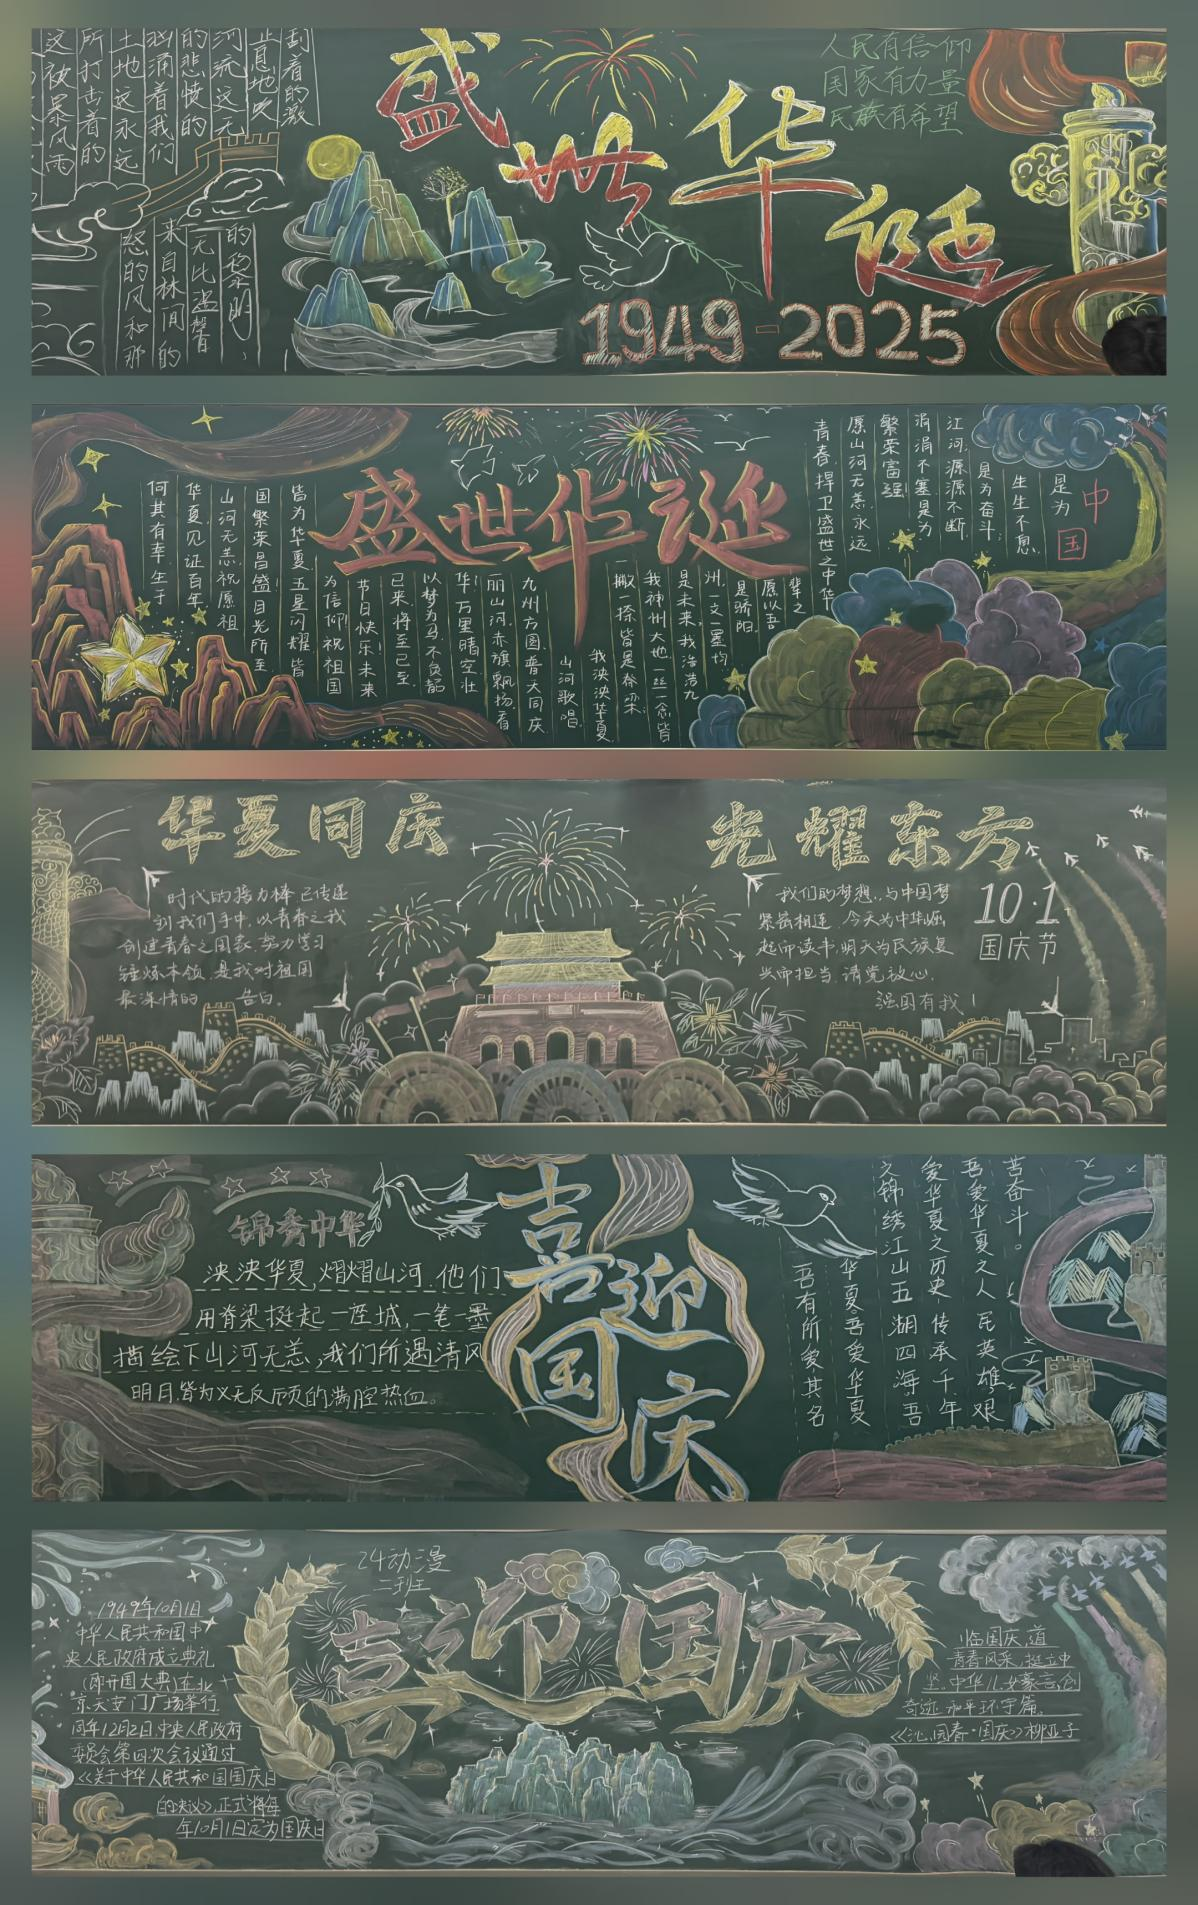 刮着的激
止息地吹
河流这无
的悲愤的
汹涌着我们
土地这永远
所打击着的
这被暴风雨
的黎明，
无比温馨
来自林间的
怒的风和那
盛世华诞
人民有信仰
国家有力量
民族有希望
1949-2025
中国
是为
生生不息
是为奋斗；
江河源源不断
涓涓不塞是为
繁荣富强
愿山河无恙永远
青春捍卫盛世之中华
盛世华诞
辈之
愿以吾
是骄阳.
洲.一文一墨均
是未来,我浩浩九
我神州大地一丝一念皆
一撇一捺皆是脊梁;
我泱泱华夏
山河歌唱
九州方圆普天同庆
丽山河.赤旗飘扬.看
华!万里晴空.壮
以梦为马.不负韶
已来.将至已至.
节日快乐!未来
为信仰!祝祖国
皆为华夏.五星闪耀皆
国繁荣昌盛目光所至
山河无恙.祝愿祖
华夏.见证百年
何其有幸生于
华夏同庆
光耀东方
时代的接力棒已传递
到我们手中,以青春之我
创建青春之国家.努力学习
锤炼本领,是我对祖国
最深情的 告白。
我们的梦想,与中国梦
紧密相连.今天为中华崛
起而读书,明天为民族复
兴而担当.请党放心.
强国有我！
10·1
国庆节
锦秀中华
泱泱华夏,熠熠山河.他们
用脊梁挺起一座城,一笔一墨
描绘下山河无恙,我们所遇清风
明月.皆为义无反顾的满腔热血。
喜迎国庆
苦奋斗。
吾爱华夏之人民英雄艰
爱华夏之历史传承千年
之锦绣江山五湖四海吾
华夏吾爱华夏
吾有所爱其名
24动漫
二班
喜迎国庆
1949年10月1日
中华人民共和国中
央人民政府成立典礼
(即开国大典)在北
京天安门广场举行.
同年12月2日,中央人民政府
委员会第四次会议通过
《关于中华人民共和国国庆日
的决议》,正式将每
年10月1日定为国庆日
临国庆,道
青春风采,挺立中
坚.中华儿女豪言,创
奇迹.和平环宇篇.
《沁园春·国庆》柳亚子